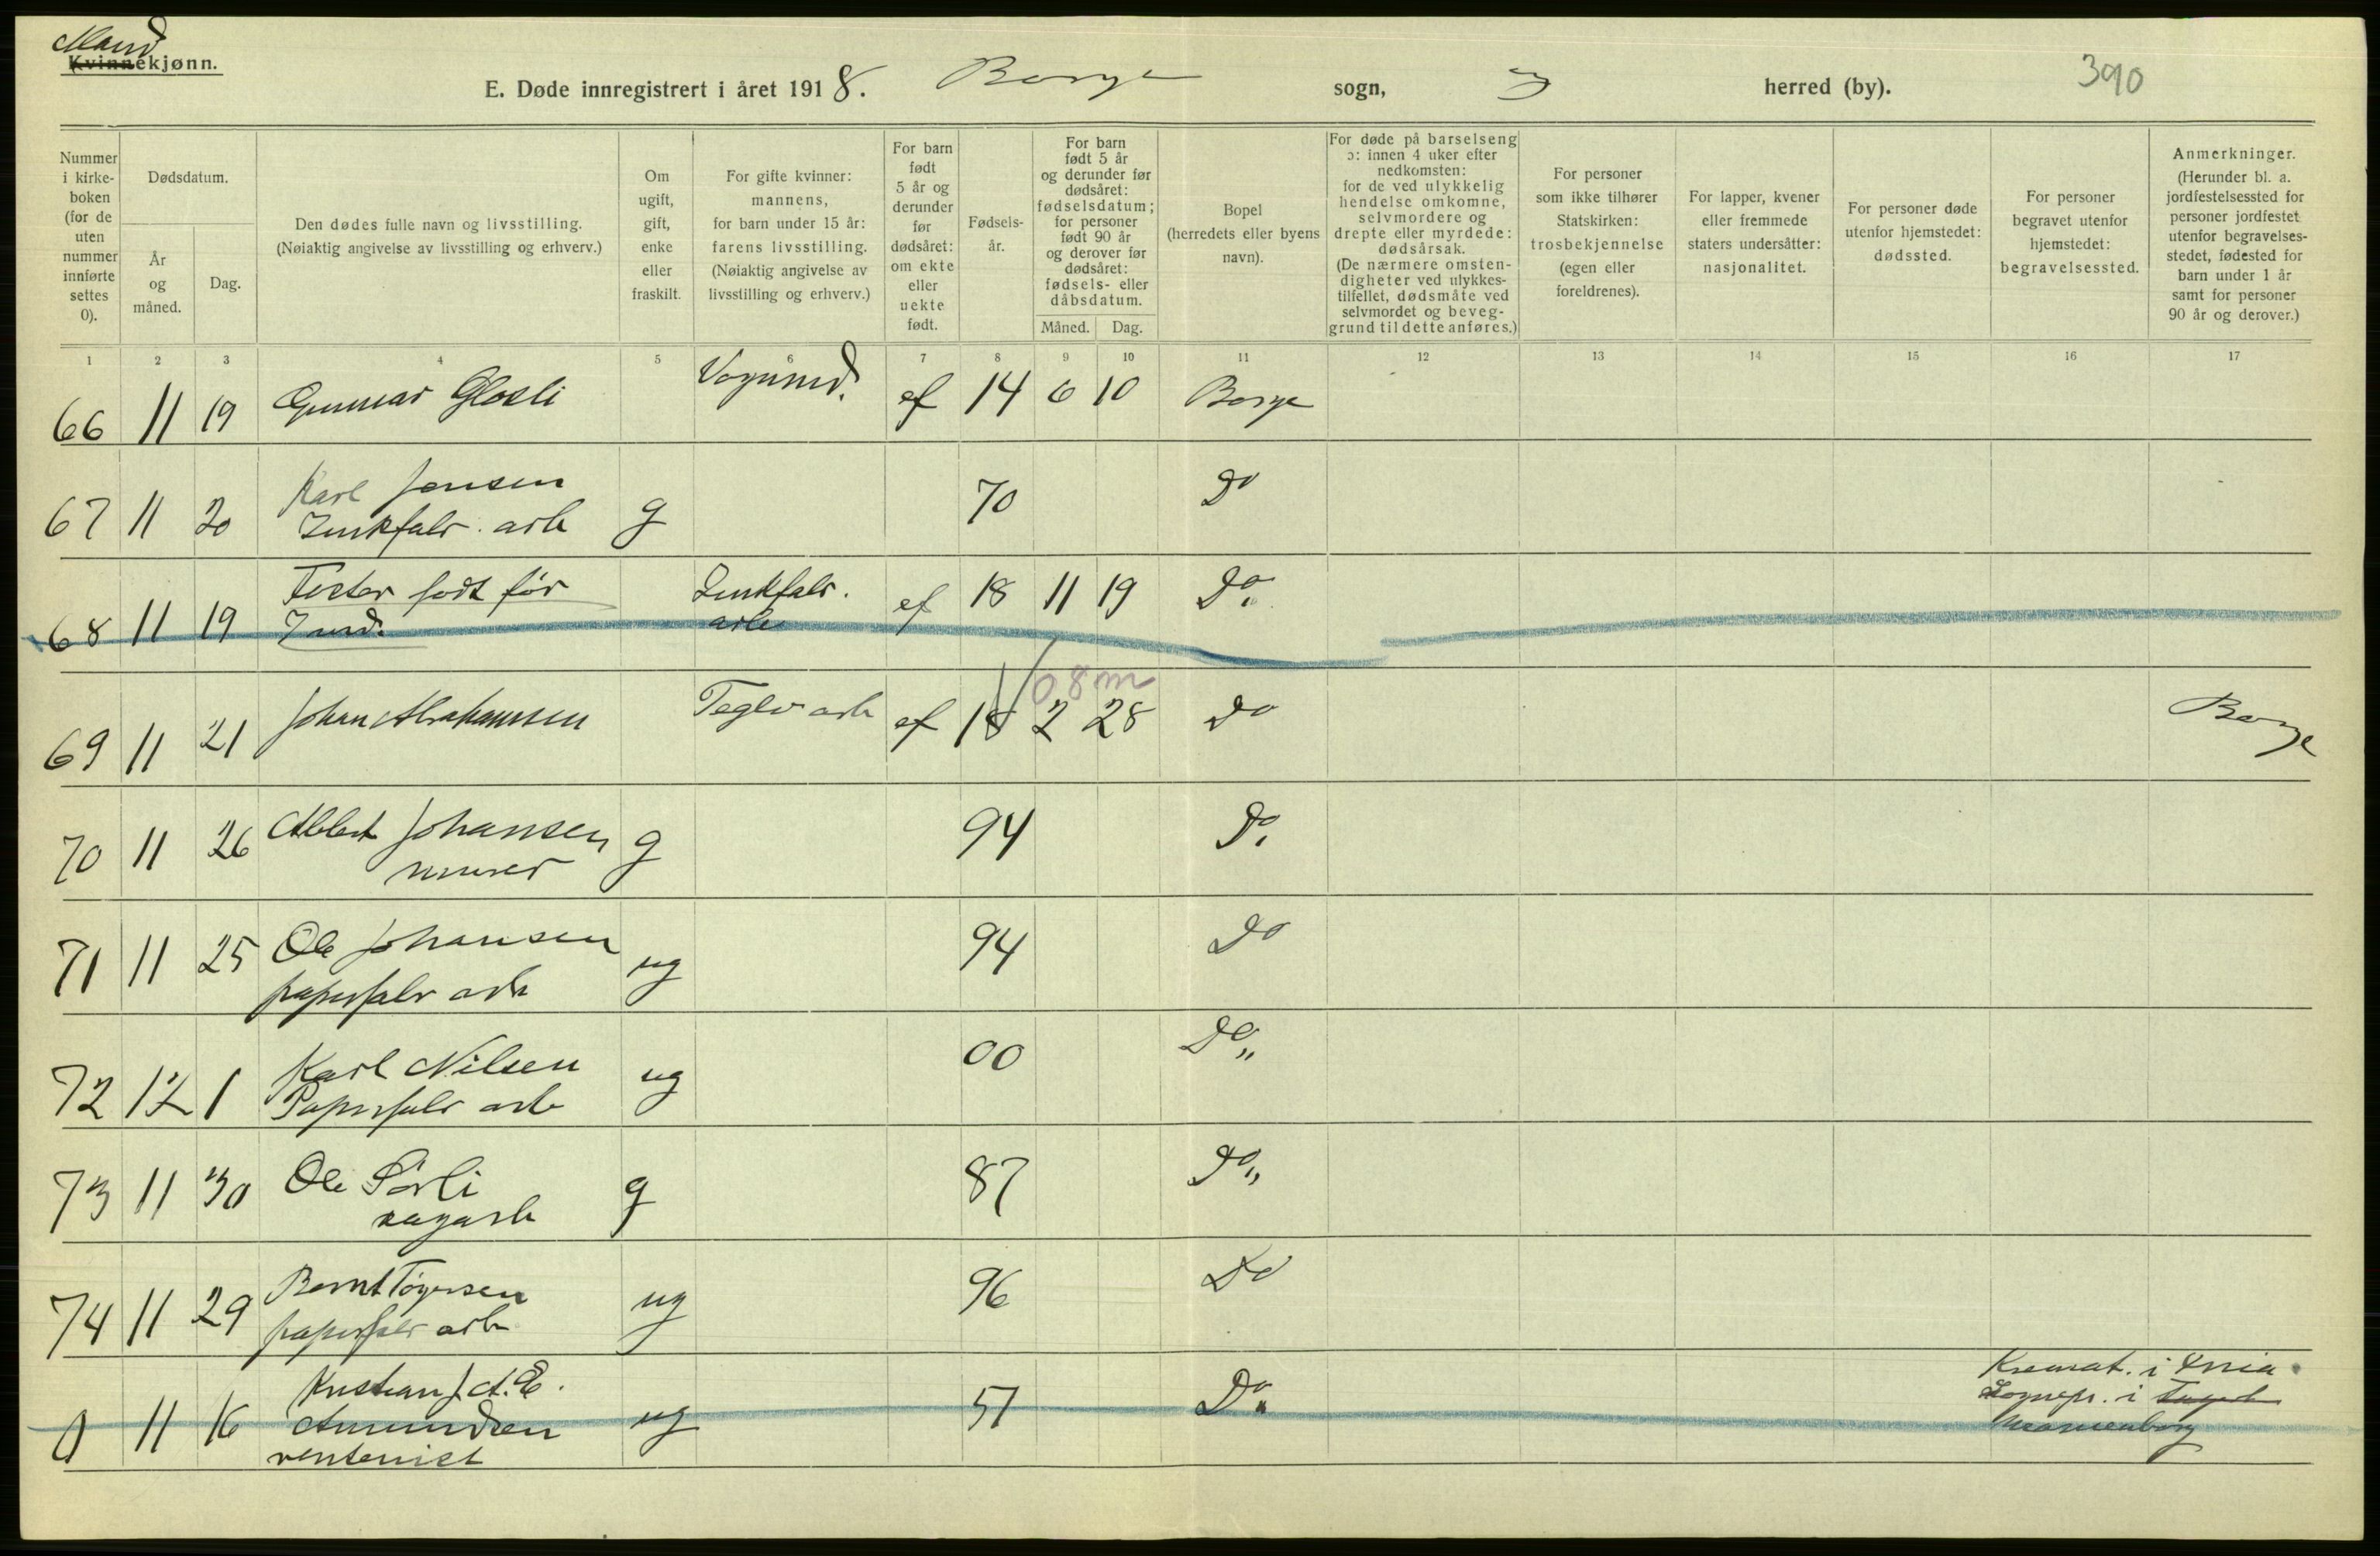 Mand
Kvinnekjønn.
E. Døde innregistrert i året 1918. Borge sogn, herred (by). 390
Nummer i kirke-boken (for de uten nummer innførte settes 0).
Dødsdatum.
År og måned.
Dag.
Den dødes fulle navn og livsstilling.
(Nøiaktig angivelse av livsstilling og erhverv.)
Om ugift, gift, enke eller fraskilt.
For gifte kvinner: mannens, for barn under 15 år: farens livsstilling. (Nøiaktig angivelse av livsstilling og erhverv.)
For barn født 5 år og derunder før dødsåret: om ekte eller uekte født.
Fødsels-år.
For barn født 5 år og derunder før dødsåret: fødselsdatum; for personer født 90 år og derover før dødsåret: fødsels- eller dåbsdatum.
Måned. Dag.
Bopel (herredets eller byens navn).
For døde på barselseng ɔ: innen 4 uker efter nedkomsten: for de ved ulykkelig hendelse omkomne, selvmordere og drepte eller myrdede: dødsårsak. (De nærmere omsten-digheter ved ulykkes-tilfellet, dødsmåte ved selvmordet og beveg-grund til dette anføres.)
For personer som ikke tilhører Statskirken: trosbekjennelse (egen eller foreldrenes).
For lapper, kvener eller fremmede staters undersåtter: nasjonalitet.
For personer døde utenfor hjemstedet: dødssted.
For personer begravet utenfor hjemstedet: begravelsessted.
Anmerkninger. (Herunder bl. a. jordfestelsessted for personer jordfestet utenfor begravelses-stedet, fødested for barn under 1 år samt for personer 90 år og derover.)
1 2 3 4 5 6 7 8 9 10 11 12 13 14 15 16 17
66 11 19 Gunnar Glosli Vognmd. ef 14 6 10 Borge
67 11 20 Karl Jensen g 70 Do
Zinkfabr. arb
68 11 19 Foster født før ef 18 11 19 Do
Zinkfabr. arb
0 8 m
69 11 21 Johan Abrahamsen Teglv arb ef 18 2 28 Do Borge
70 11 26 Albert Johansen g 94 Do
murer
71 11 25 Ole Johansen ug 94 Do
papirfabr arb
72 12 1 Karl Nilsen ug 00 Do
Papirfabr arb
73 11 30 Ole Sørli g 87 Do
sagarb
74 11 29 Bernt Tøgersen ug 96 Do
papirfabr arb
0 11 16 Kristian J. A. E. ug 51 Do Kremat. i
Amundsen Sognepr. i
rentenist